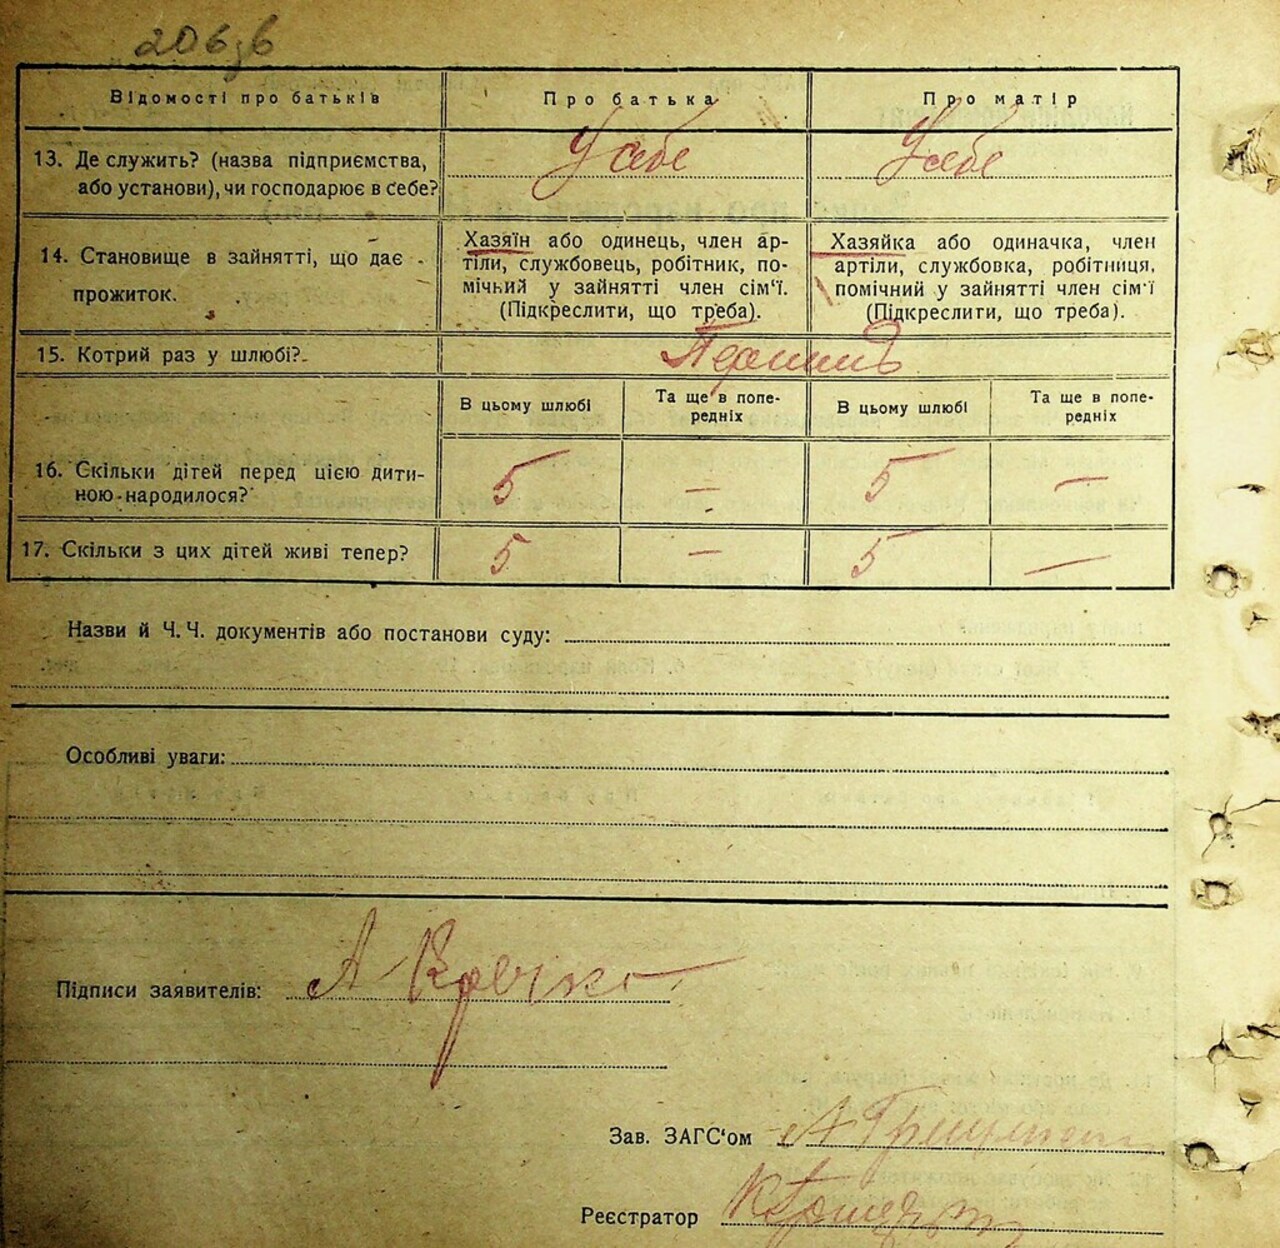 206зв
Відомості про батьків
Про батька
Про матір
13. Де служить? (назва підприємства,
або установи), чи господарює в себе?
У себе
У себе
14. Становище в зайнятті, що дає
прожиток.
Хазяїн або одинець, член ар-
тіли, службовець, робітник, по-
мічний у зайнятті член сім'ї.
(Підкреслити, що треба).
Хазяйка або одиначка, член
артіли, службовка, робітниця,
помічний у зайнятті член сім'ї
(Підкреслити, що треба).
15. Котрий раз у шлюбі?
В цьому шлюбі
Та ще в попе-
редніх
В цьому шлюбі
Та ще в попе-
редніх
16. Скільки дітей перед цією дити-
ною народилося?
5
—
5
—
17. Скільки з цих дітей живі тепер?
5
—
5
—
Назви й Ч. Ч. документів або постанови суду:
Особливі уваги:
Підписи заявителів:
А
Зав. ЗАГС'ом
Реєстратор